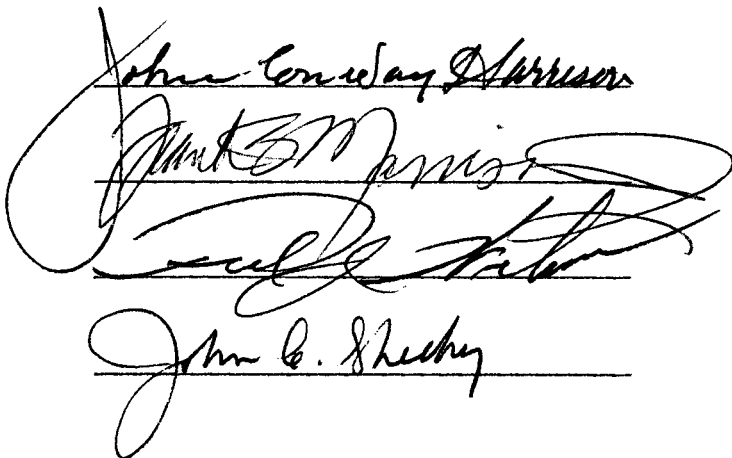 John Conway Harrison
Frank B Morrison
John C. Sheehy